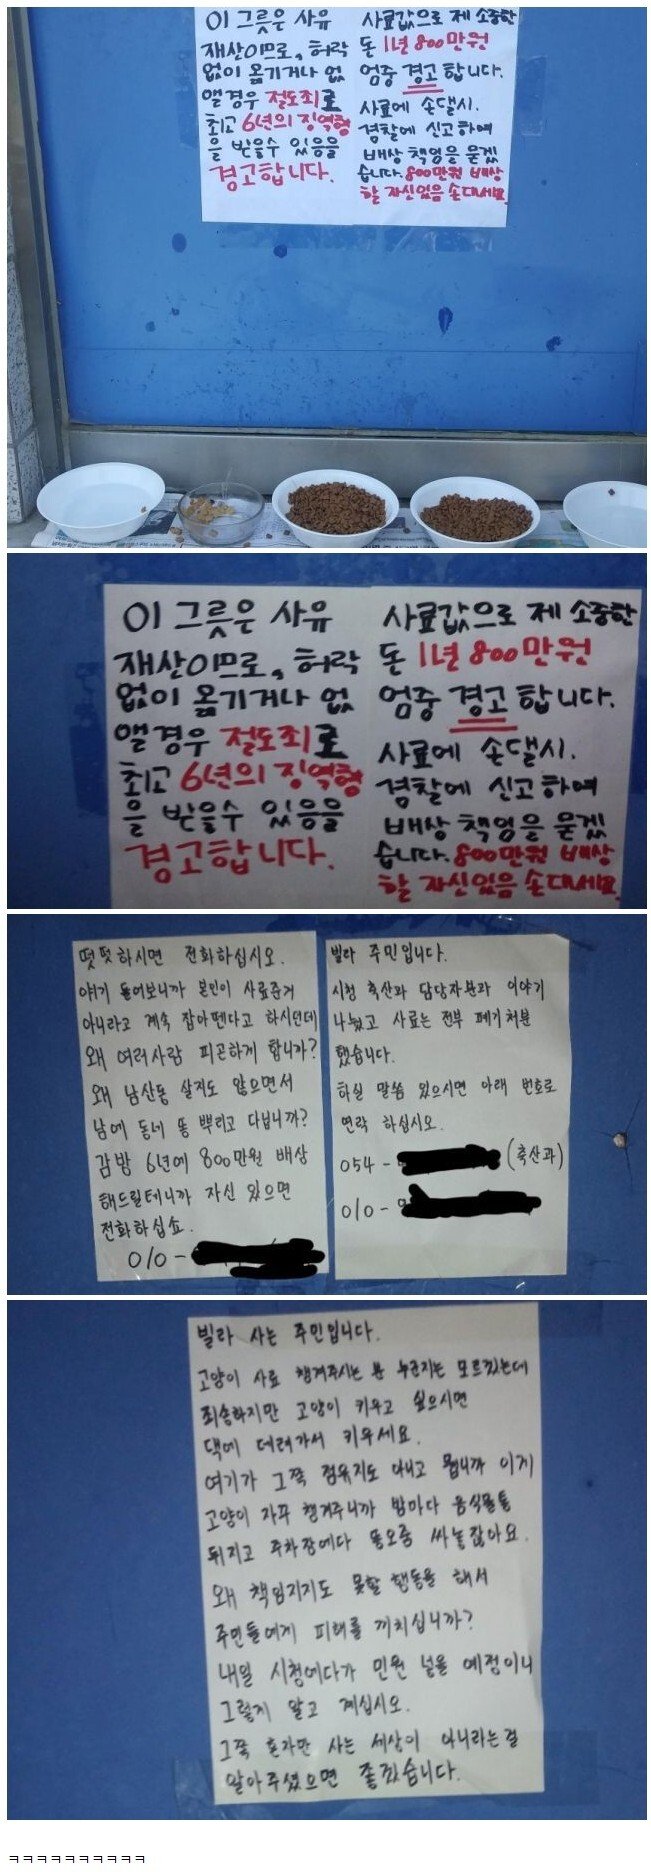 이 그릇은 사유
재산이므로, 허락
없이 옮기거나 없
앨경우 절도죄로
최고 6년의 징역형
을 받을수 있음을
경고합니다.
사료값으로 제 소중한
돈 1년 800만원
엄중 경고합니다.
사료에 손댈시.
경찰에 신고하여
배상 책임을 묻겠
습니다. 800만원 배상
할 자신있음 손대세요.
이 그릇은 사유
재산이므로, 허락
없이 옮기거나 없
앨경우 절도죄로
최고 6년의 징역형
을 받을수 있음을
경고합니다.
사료값으로 제 소중한
돈 1년 800만원
엄중 경고합니다.
사료에 손댈시.
경찰에 신고하여
배상 책임을 묻겠
습니다. 800만원 배상
할 자신있음 손대세요.
떳떳하시면 전화하십시오.
얘기 들어보니까 본인이 사료준거
아니라고 계속 잡아뗀다고 하시던데
왜 여러사람 피곤하게 합니까?
왜 남산동 살지도 않으면서
남에 동네 똥 뿌리고 다닙니까?
감방 6년에 800만원 배상
해드릴테니까 자신 있으면
전화하십쇼.
010-
빌라 주민입니다.
시청 축산과 담당자분과 이야기
나눴고 사료는 전부 폐기처분
했습니다.
하실 말씀 있으시면 아래 번호로
연락 하십시오.
054- (축산과)
010-
빌라 사는 주민입니다.
고양이 사료 챙겨주시는 분 누군지는 모르겠는데
죄송하지만 고양이 키우고 싶으시면
댁에 데려가서 키우세요.
여기가 그쪽 점유지도 아니고 뭡니까 이게
고양이 자꾸 챙겨주니까 밤마다 음식물통
뒤지고 주차장에다 똥오줌 싸놓잖아요.
왜 책임지지도 못할 행동을 해서
주민들에게 피해를 끼치십니까?
내일 시청에다가 민원 넣을 예정이니
그렇게 알고 계십시오.
그쪽 혼자만 사는 세상이 아니라는걸
알아주셨으면 좋겠습니다.
ㅋㅋㅋㅋㅋㅋㅋㅋㅋㅋ